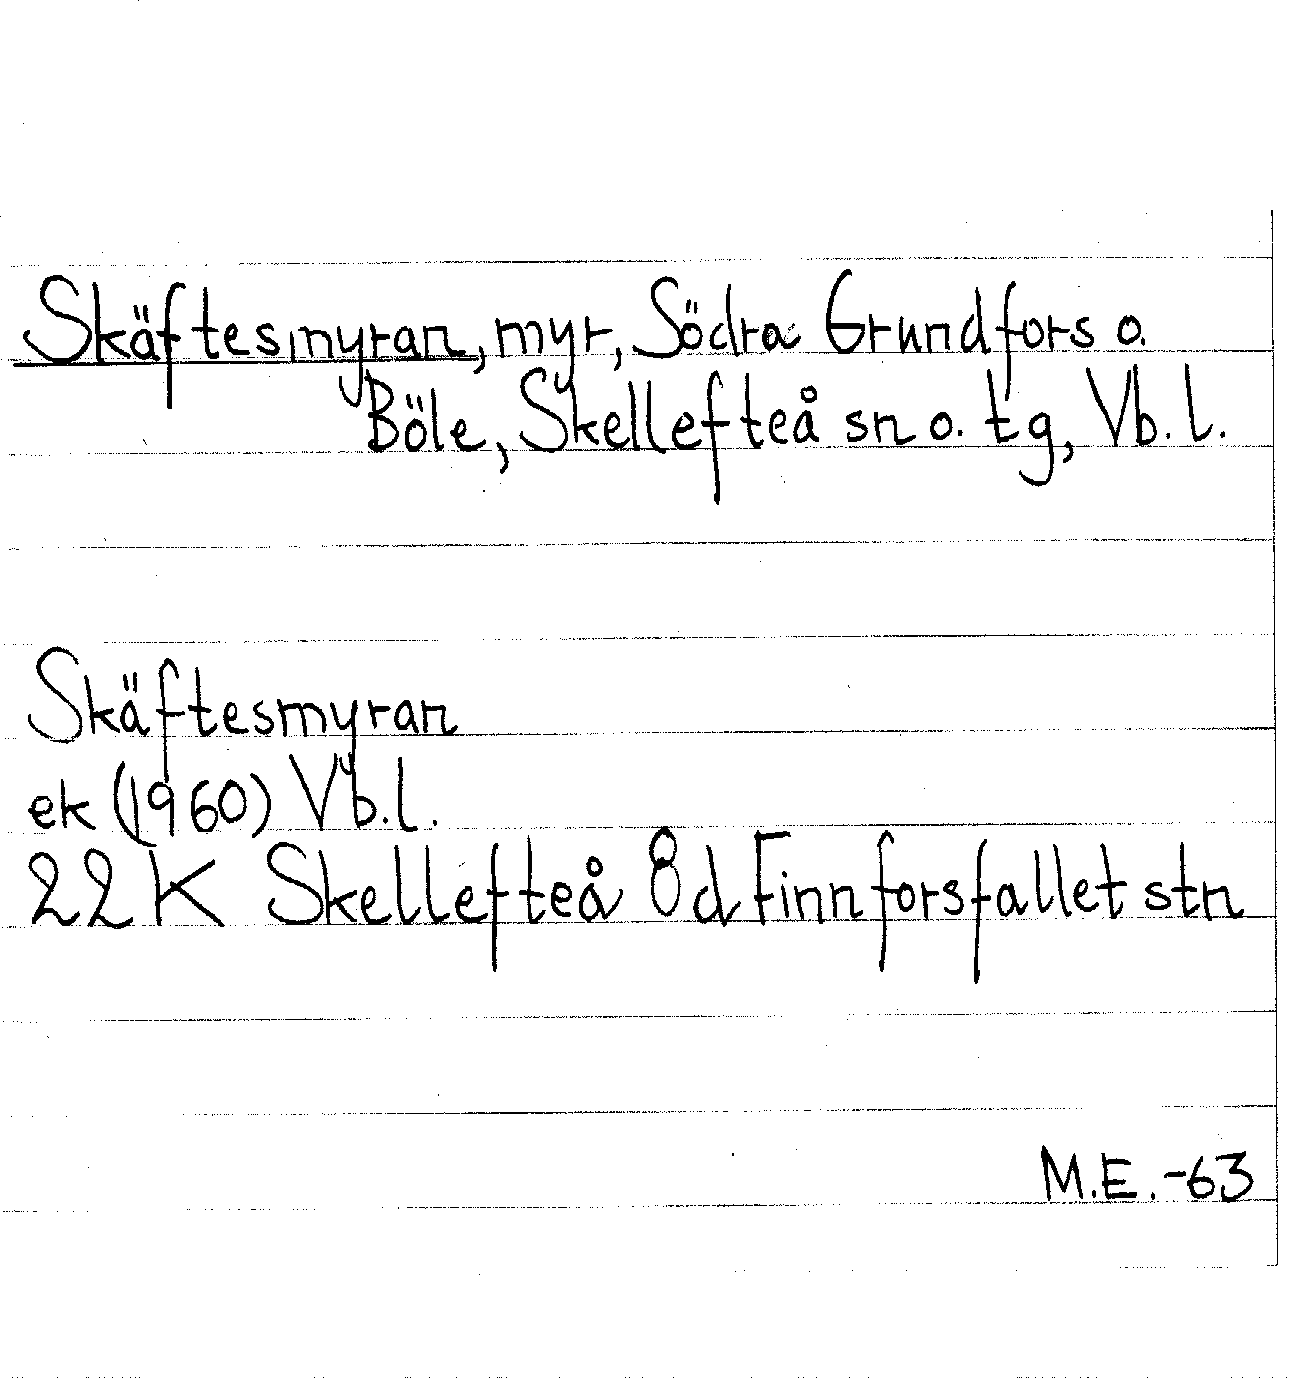 Skäftesmyran, myr, Södra Grundfors o.
Böle, Skellefteå sn o. tg, Vb. l.
Skäftesmyran
ek (1960) Vb. l.
22 K Skellefteå 8d Finnforsfallet stn
M.E. -63